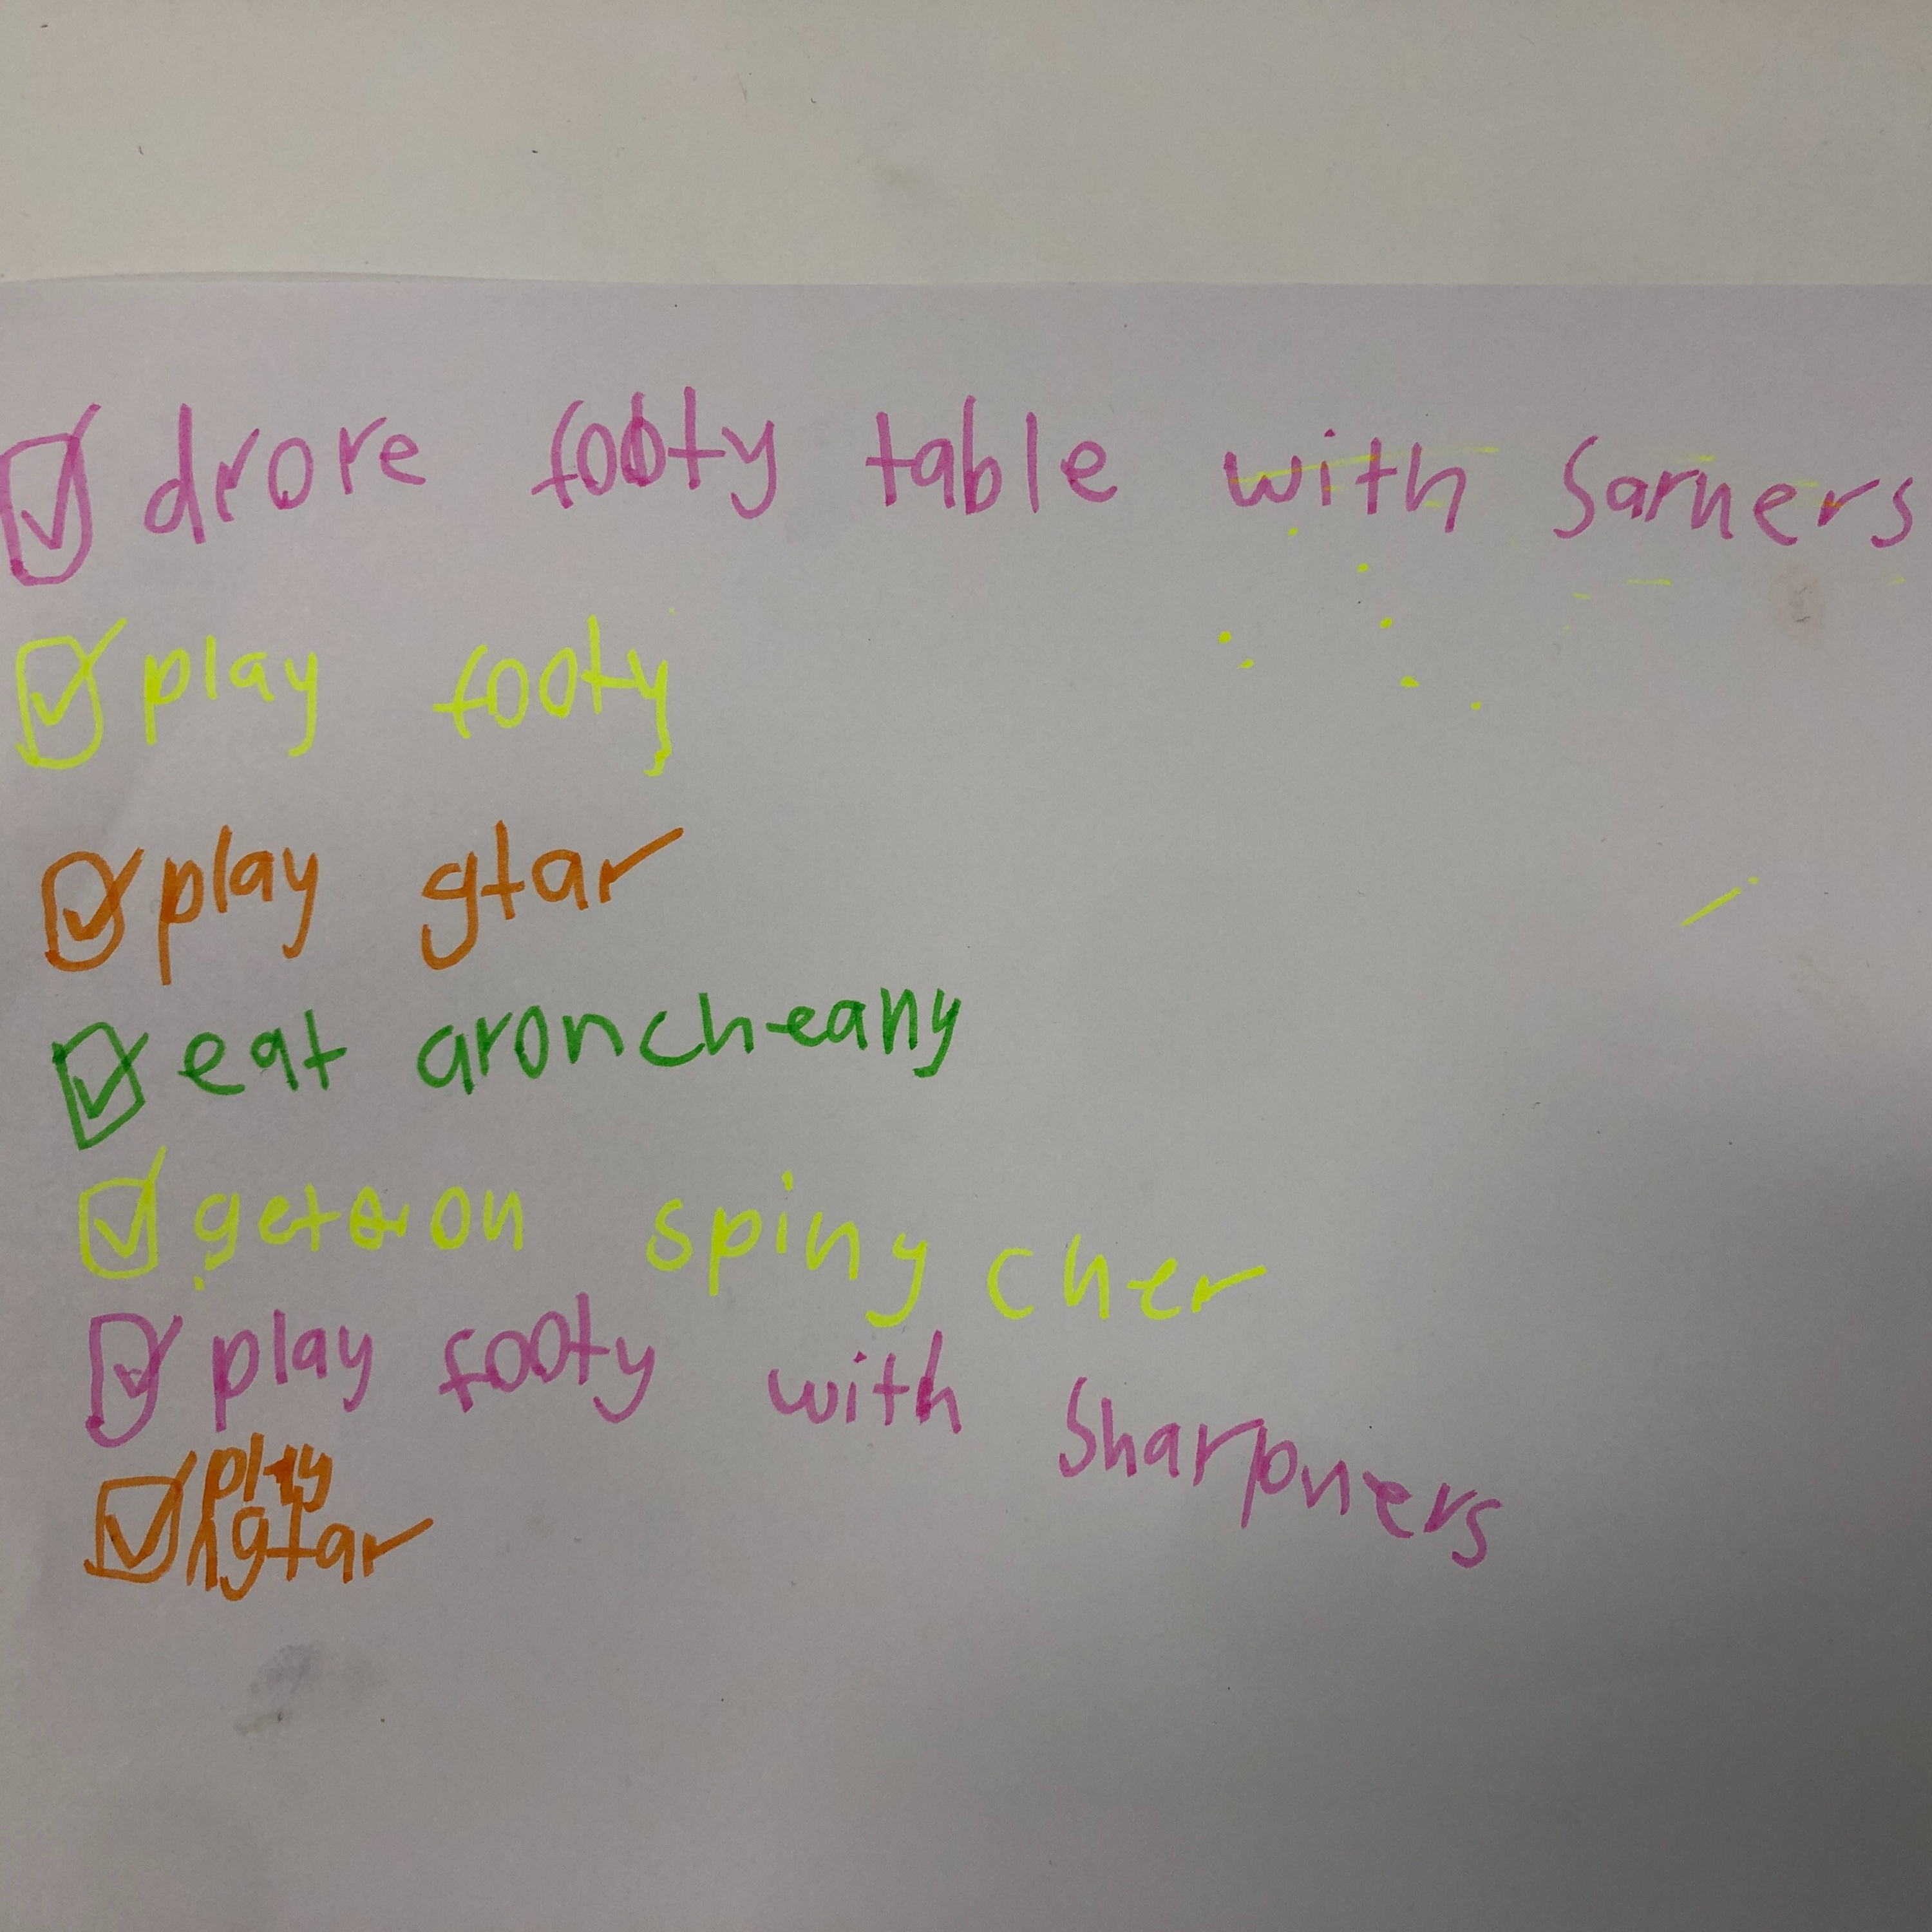 ☑ drore footy table with Sarners
☑ play footy
☑ play gtar
☑ eat aroncheany
☑ get on spiny cher
☑ play footy with Sharpners
☑ play
gtar